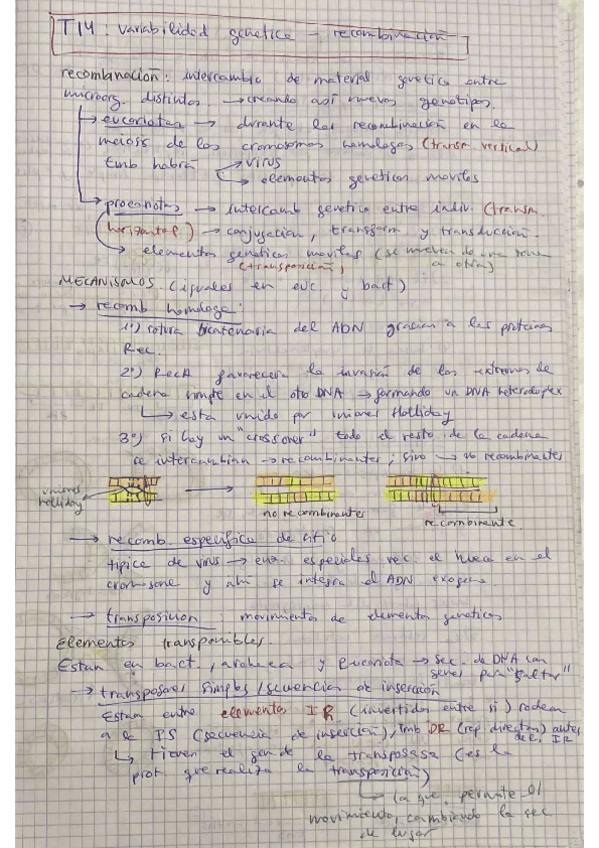 T14: variabilidad genética - recombinación
recombinación: intercambio de material genetico entre
microorg. distintos → creando así nuevos genotipos.
→ eucariotas → durante la recombinación en la
meiosis de los cromosomas homologos (transm vertical)
tmb habrá → virus
→ elementos geneticos moviles
→ procariotas → intercamb genetico entre indiv. (transm.
horizontal) → conjugacion, transform y transducción.
→ elementos geneticos moviles (se mueven de una zona
a otra)
(transposición)
MECANISMOS (iguales en euc y bact)
→ recomb homologa:
1º) rotura bicatenaria del ADN gracias a las proteinas
Rec.
2º) RecA favorecera la invasión de los extremos de
cadena simple en el otro DNA → formando un DNA heteroduplex
→ esta unido por uniones Holliday
3º) si hay un "crossover" todo el resto de la cadena
se intercambian → recombinantes; sino → no recombinantes
uniones
holliday
no recombinantes
recombinante
→ recomb. especifica de sitio
tipica de virus → enz. especiales rec. el hueco en el
cromosoma y ahi se integra el ADN exogeno
→ transposicion: movimientos de elementos geneticos
Elementos transponibles.
Estan en bact., archaea y Eucariota → sec. de DNA con
genes para "saltar"
→ transposones simples / secuencias de inserción
Estan entre elementos IR (invertidos entre si) rodean
a la IS (secuencia de inserción), tmb DR (rep directas) antes
de IR
→ tienen el gen de la transposasa (es la
prot. que realiza la transposición)
→ la que permite el
movimiento, cambiando la sec
de lugar